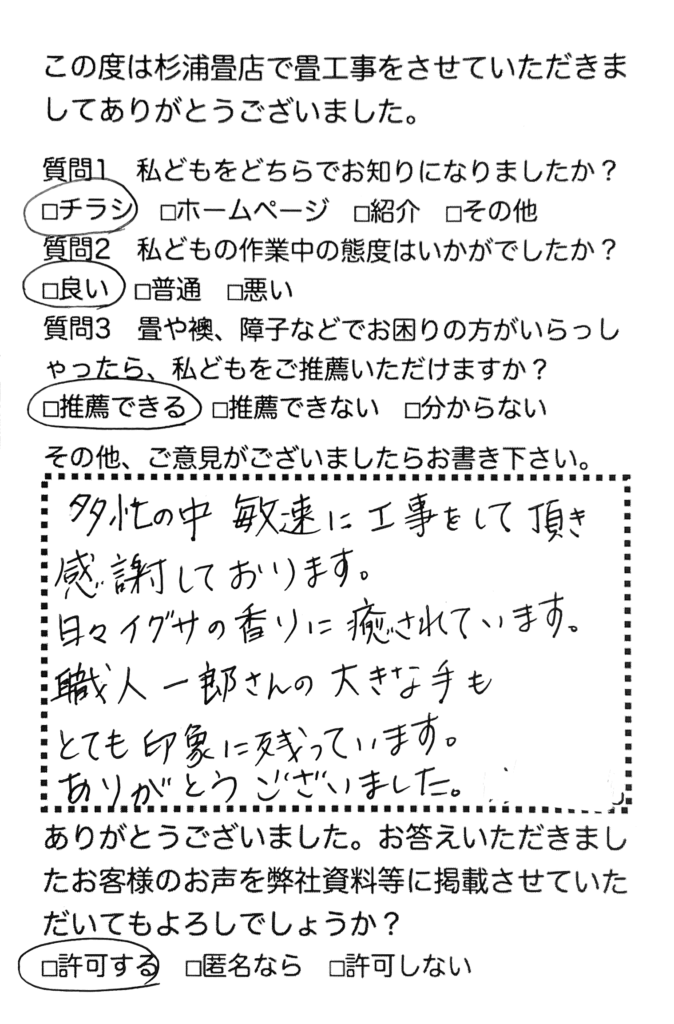 この度は杉浦畳店で畳工事をさせていただきま
してありがとうございました。
質問1　私どもをどちらでお知りになりましたか？
□チラシ　□ホームページ　□紹介　□その他
質問2　私どもの作業中の態度はいかがでしたか？
□良い　□普通　□悪い
質問3　畳や襖、障子などでお困りの方がいらっし
ゃったら、私どもをご推薦いただけますか？
□推薦できる　□推薦できない　□分からない
その他、ご意見がございましたらお書き下さい。
多忙の中 敏速に工事をして頂き
感謝しております。
日々イグサの香りに癒されています。
職人一郎さんの大きな手も
とても印象に残っています。
ありがとうございました。
ありがとうございました。お答えいただきまし
たお客様のお声を弊社資料等に掲載させていた
だいてもよろしでしょうか？
□許可する　□匿名なら　□許可しない